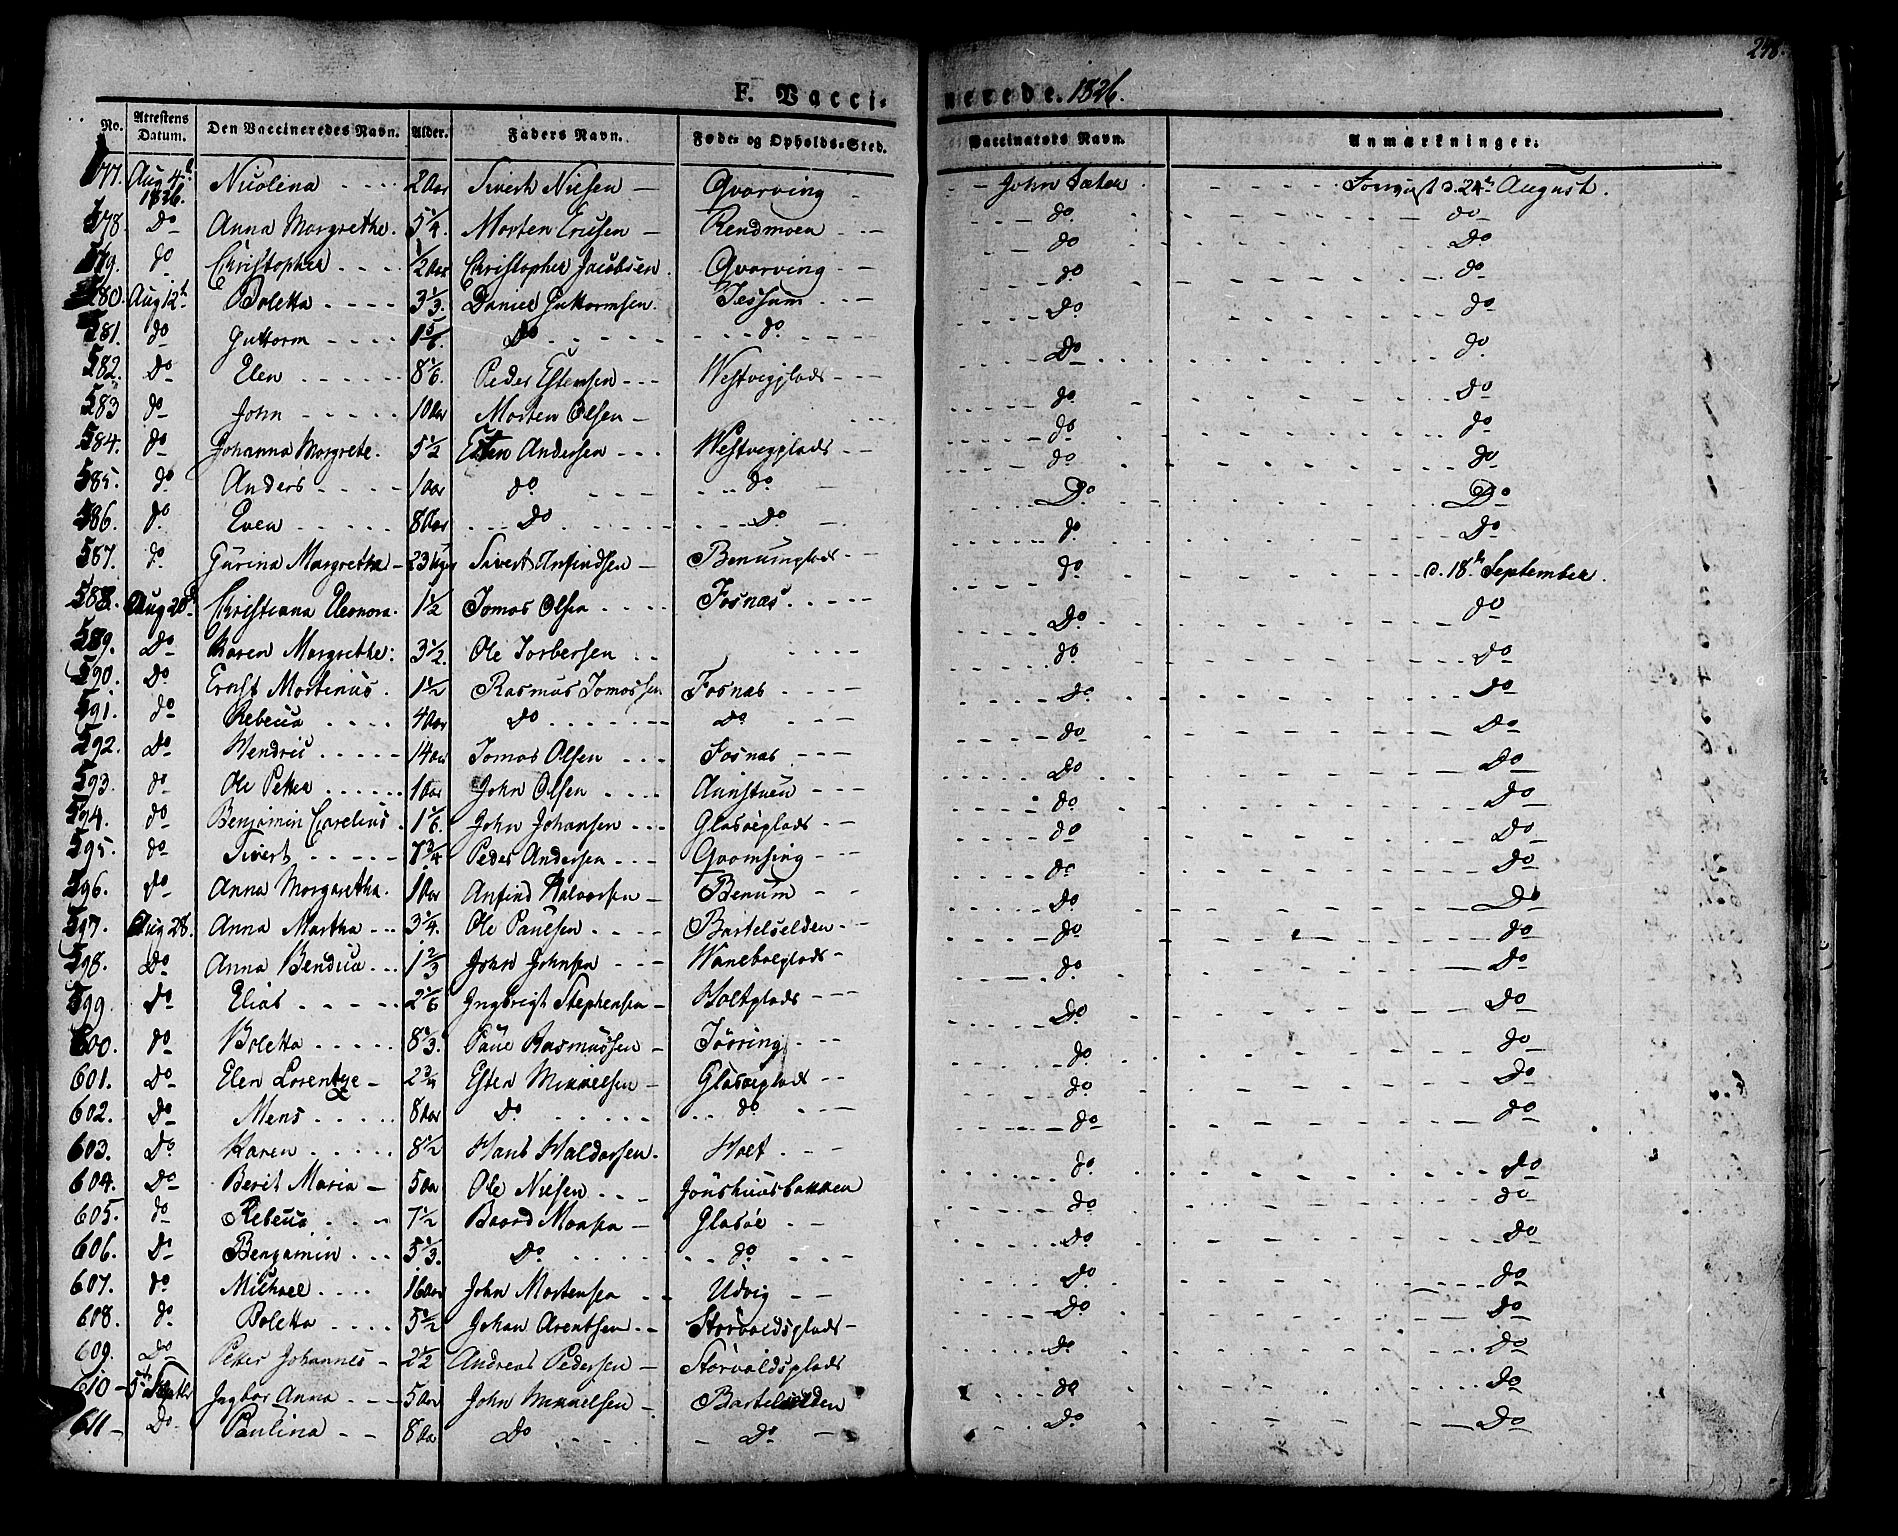 248.
F. Vaccinerede. 1826.
No. | Attestens Datum. | Den Vaccineredes Navn. | Alder. | Faders Navn. | Føde- og Opholds-Sted. | Vaccinators Navn. | Anmærkninger.
577. Aug 4 1826. Nicolina 2 Aar Sivert Nielsen Qvarving John Sæter d. 24 August.
578. Do Anna Margrethe. 5 1/4. Morten Ericsen Rendmoen do do
579. do Christopher 1/2 Aar Christopher Jacobsen Qvarving do Do
580. Aug 12 Boletta 3 1/3. Daniel Guttormsen. Jessum do do
581. do Guttorm 1 5/6 Do do Do do
582. Do Elen 8 1/6. Peder Estensen Westvegplads Do do
583 do John 10 Aar Morten Olsen do Do
584. do Johanna Margrete. 5 1/2 Esten Andersen Westvegplads do do
585. do Anders 1 Aar do do do do
586. do. Even 8 Aar Do Do Do Do
587. do. Gurina Margretha 23 Sivert Anfindsen Benumplads do Do
588. Aug 20 Christianna Eleonora. 1 1/2 Tomas Olsen Fosnæs do d. 18 September.
589. Do Karen Margrethe. 3 1/2. Ole Torbersen Do do
590. Do Ernst Martinus. 1 1/2 Rasmus Tomassen Fosnæs do Do
591. do Rebecca 4 Aar Do Do Do Do
592. Do Hendric 14 Aar Tomas Olsen Fosnæs do Do
593. do Ole Petter 1 Aar John Olsen Aunstuen Do Do
594. do Benjamin Carelius 1 1/6. John Johansen Glasøeplads do Do
595. do Sivert 7 3/4 Peder Andersen Qvamsing do Do
596. Do Anna Margaretha. 1 Aar Anfind Halvorsen Benum do Do
597. Aug 28. Anna Martha 3 1/4. Ole Paulsen Bartelselden Do Do
598. Do Anna Bendica 1 2/3 John Johnsen Wanebaeplads do do
599. Do Elias 2 1/6 Ingbrigt Stephensen Holtplads do Do
600. do Boletta 8 1/3. Paul Rasmussen Jørring Do Do
601. Do Elen Lorentze 2 3/4 Esten Mikkelsen Glasøeplads do do
602. Do Mens 8 Aar Do do do Do
603. Do Karen 8 1/2 Hans Haldorsen. Holt do do
604. Do Berit Maria 5 Aar Ole Nielsen Jonshuusbakken do do
605. do Rebecca 7 1/2 Baard Monsen Glasøe do do
606. Do Benjamin 5 1/3. Do do Do Do
607. do Michael 16 Aar John Mortensen Udvig Do do
608. do. Boletta 5 1/2 Johan Arentsen Storvoldsplads Do Do
609. Do Petter Johannes 2 1/2 Andreas Pedersen Storvoldsplads Do Do
610 Ingbor Anna 5 Aar John Mikkelsen Bartelselden do Do
611 Do Paulina 8 Aar Do Do Do Do